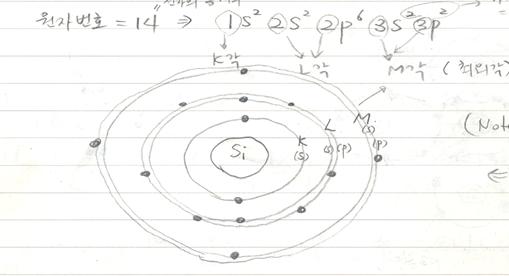 원자번호 = 14 ⇒ 1s² 2s² 2p⁶ 3s² 3p²
K각 L각 M각 (최외각)
Si K L M
(s) (s) (p) (s) (p)
(Not
⇐